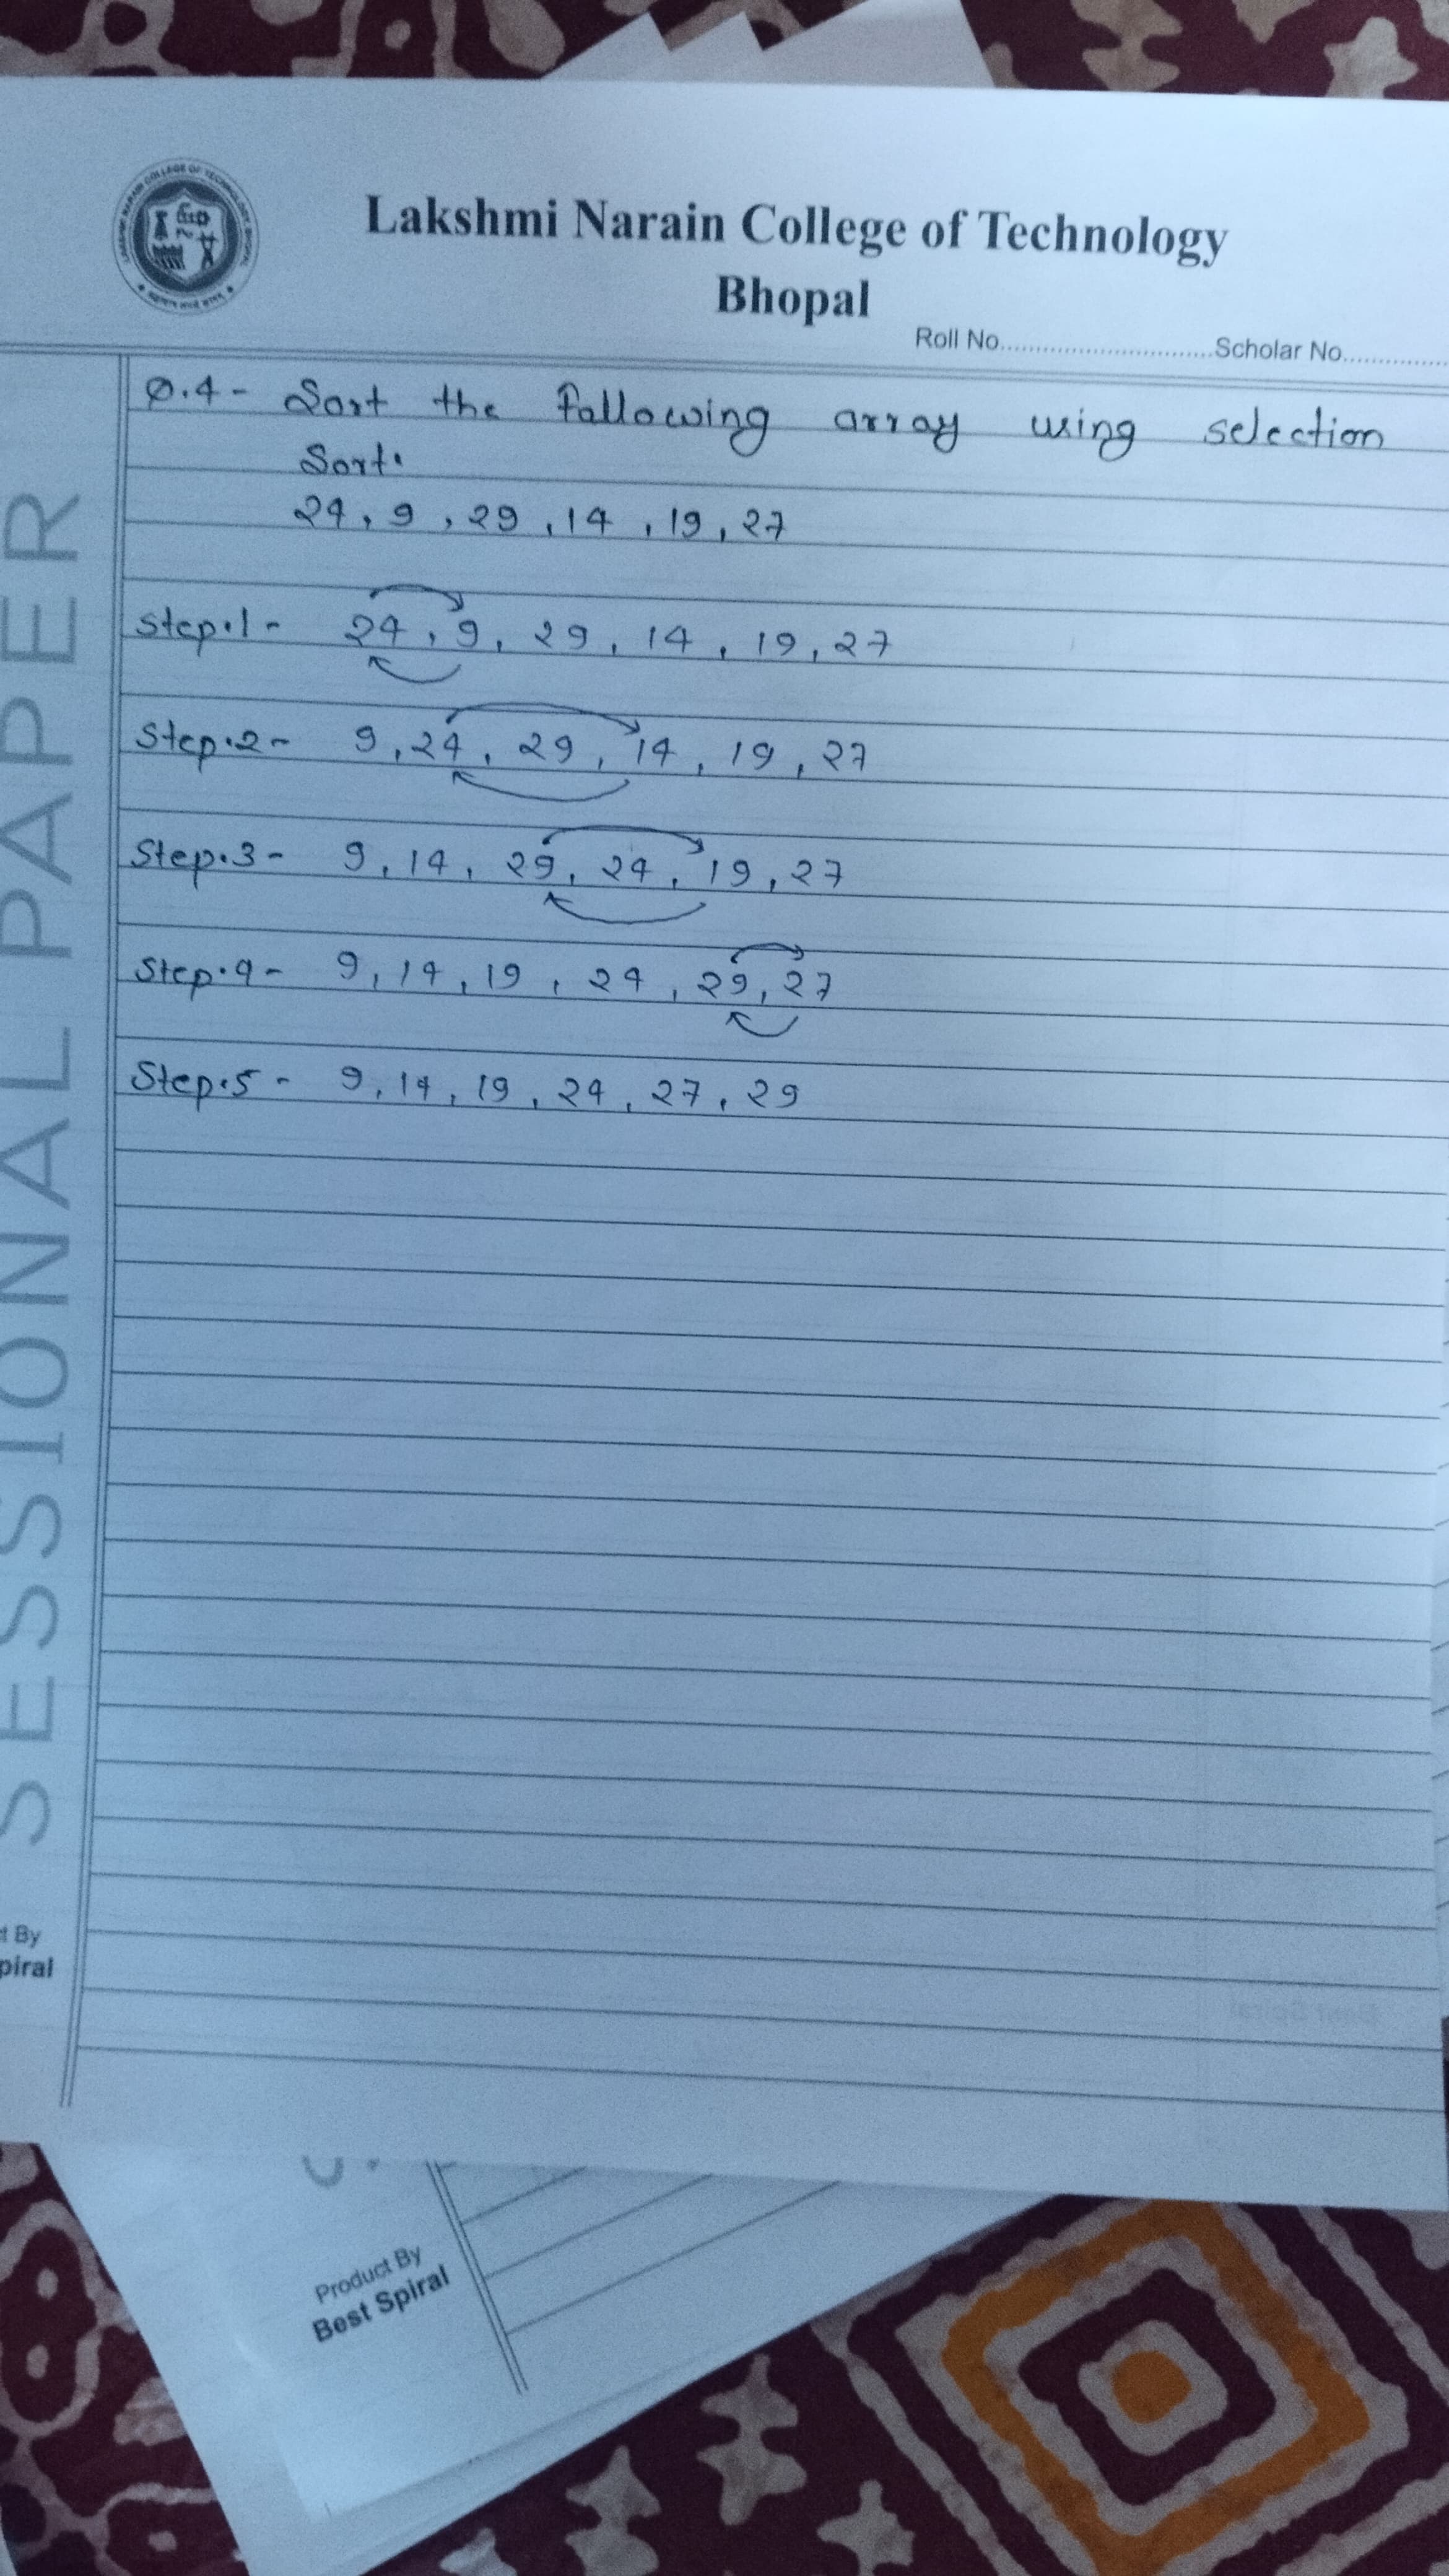 Lakshmi Narain College of Technology
Bhopal
Roll No..............................Scholar No..............
Q.4- Sort the following array using selection
Sort.
24, 9, 29, 14, 19, 27
Step.1- 24, 9, 29, 14, 19, 27
Step.2- 9, 24, 29, 14, 19, 27
Step.3- 9, 14, 29, 24, 19, 27
Step.4- 9, 14, 19, 24, 29, 27
Step.5- 9, 14, 19, 24, 27, 29
SESSIONAL PAPER
t By
piral
Product By
Best Spiral